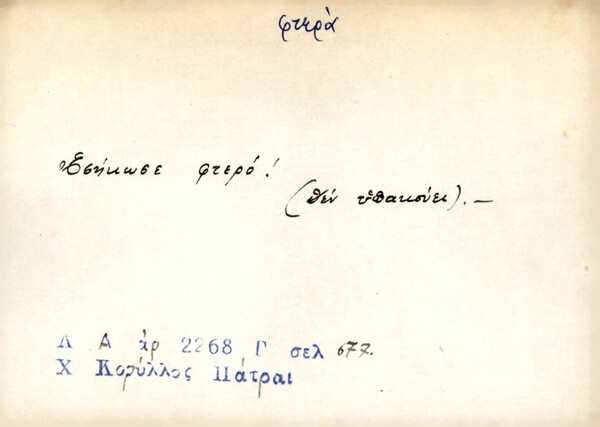 φτερὰ
Ἐσήκωσε φτερό!
(δέν ὑπακούει).—
Λ Α ἀρ 2268 Γ σελ 677.
Χ Κορύλλος Πάτραι